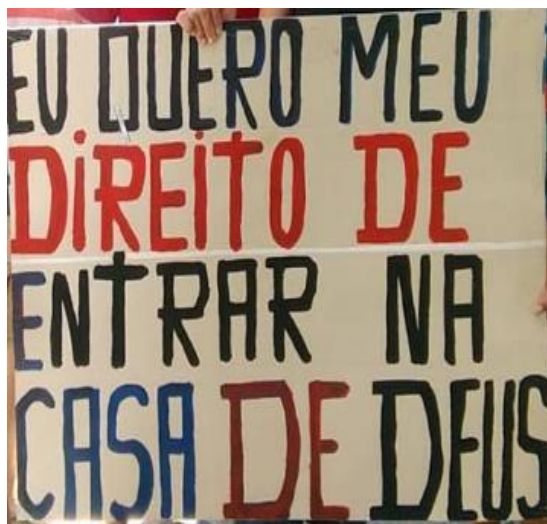 EU QUERO MEU
DiREiTO DE
ENTRAR NA
CASA DE DEUS